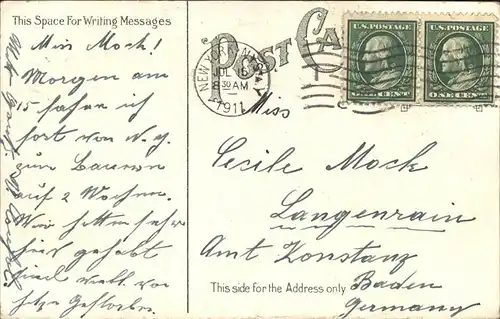 This Space For Writing Messages
POST CARD
Miss Mock!
Morgen am
15 fahre ich
fort von N.Y.
zum Bauern
auf 2 Wochen.
Wir hatten sehr
hier gehabt
sind viele
gestorben
NEW YORK, N.Y.
JUL 15
8 30 AM
1911
U.S. POSTAGE
ONE CENT
U.S. POSTAGE
ONE CENT
Miss
Cecile Mock
Langenrain
Amt Konstanz
Baden
Germany
This side for the Address only